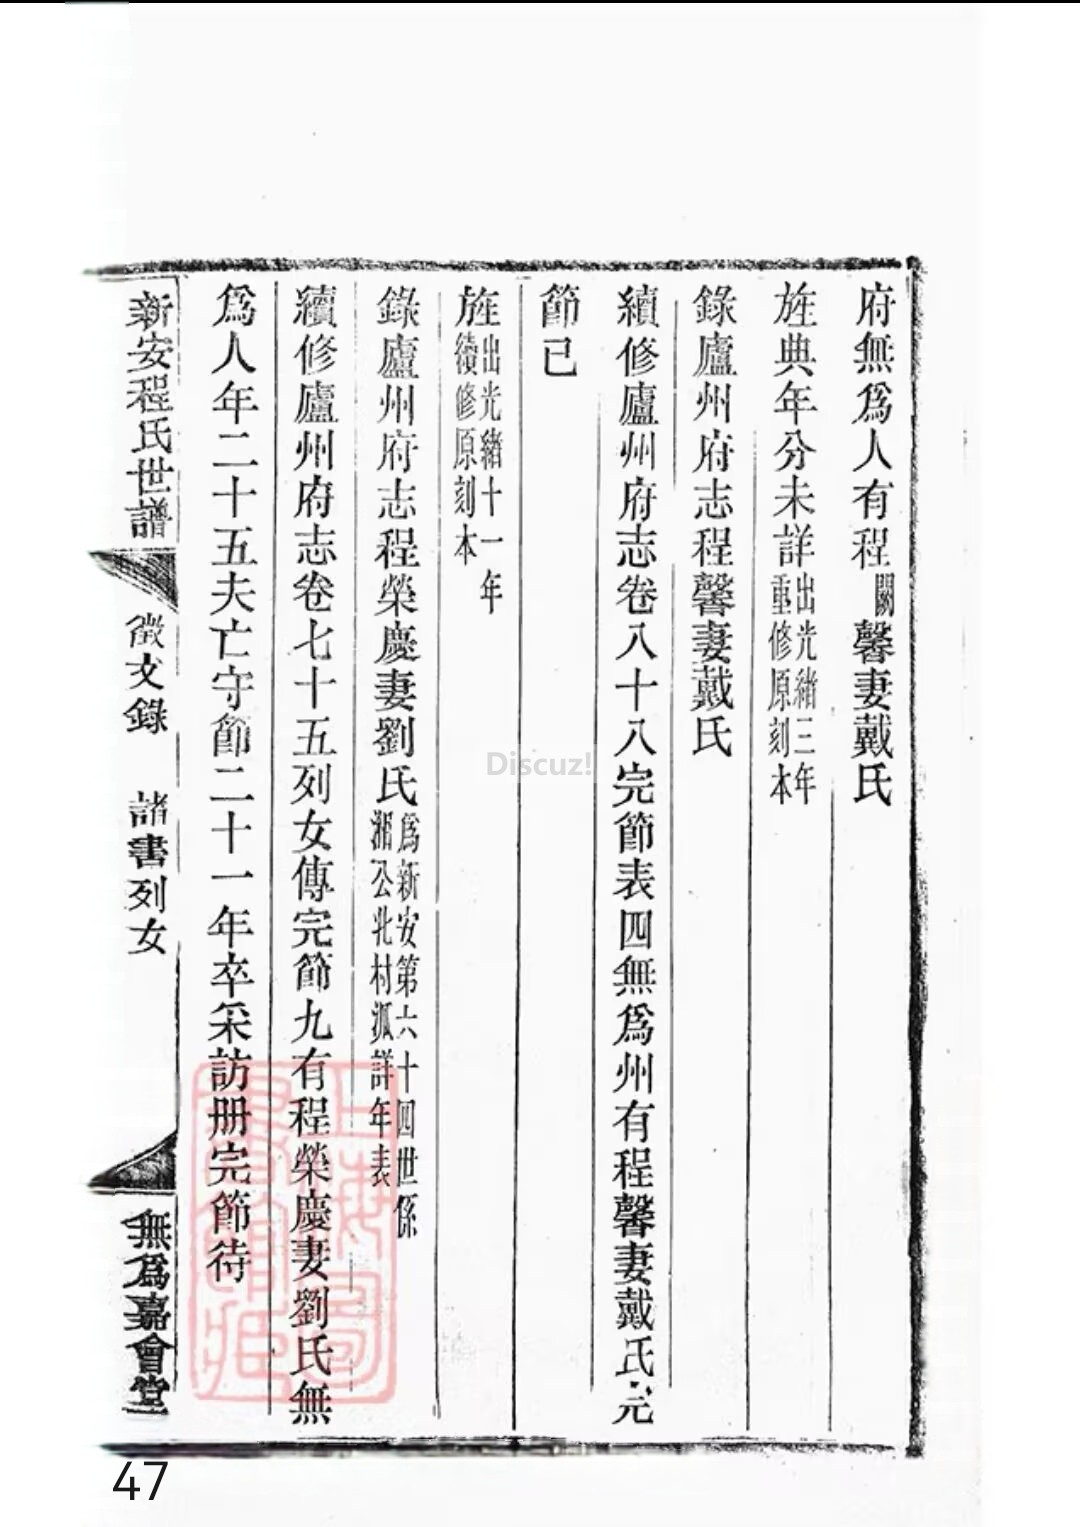 府無爲人有程闕馨妻戴氏
旌典年分未詳出光緒三年重修原刻本
錄廬州府志程馨妻戴氏
續修廬州府志卷八十八完節表四無爲州有程馨妻戴氏完
節已
旌出光緒十一年續修原刻本
錄廬州府志程榮慶妻劉氏爲新安第六十四世係湘公北村派詳年表
續修廬州府志卷七十五列女傳完節九有程榮慶妻劉氏無
爲人年二十五夫亡守節二十一年卒采訪册完節待
新安程氏世譜 徵文錄 諸書列女 無爲嘉會堂
上海圖書館藏
Discuz!
47